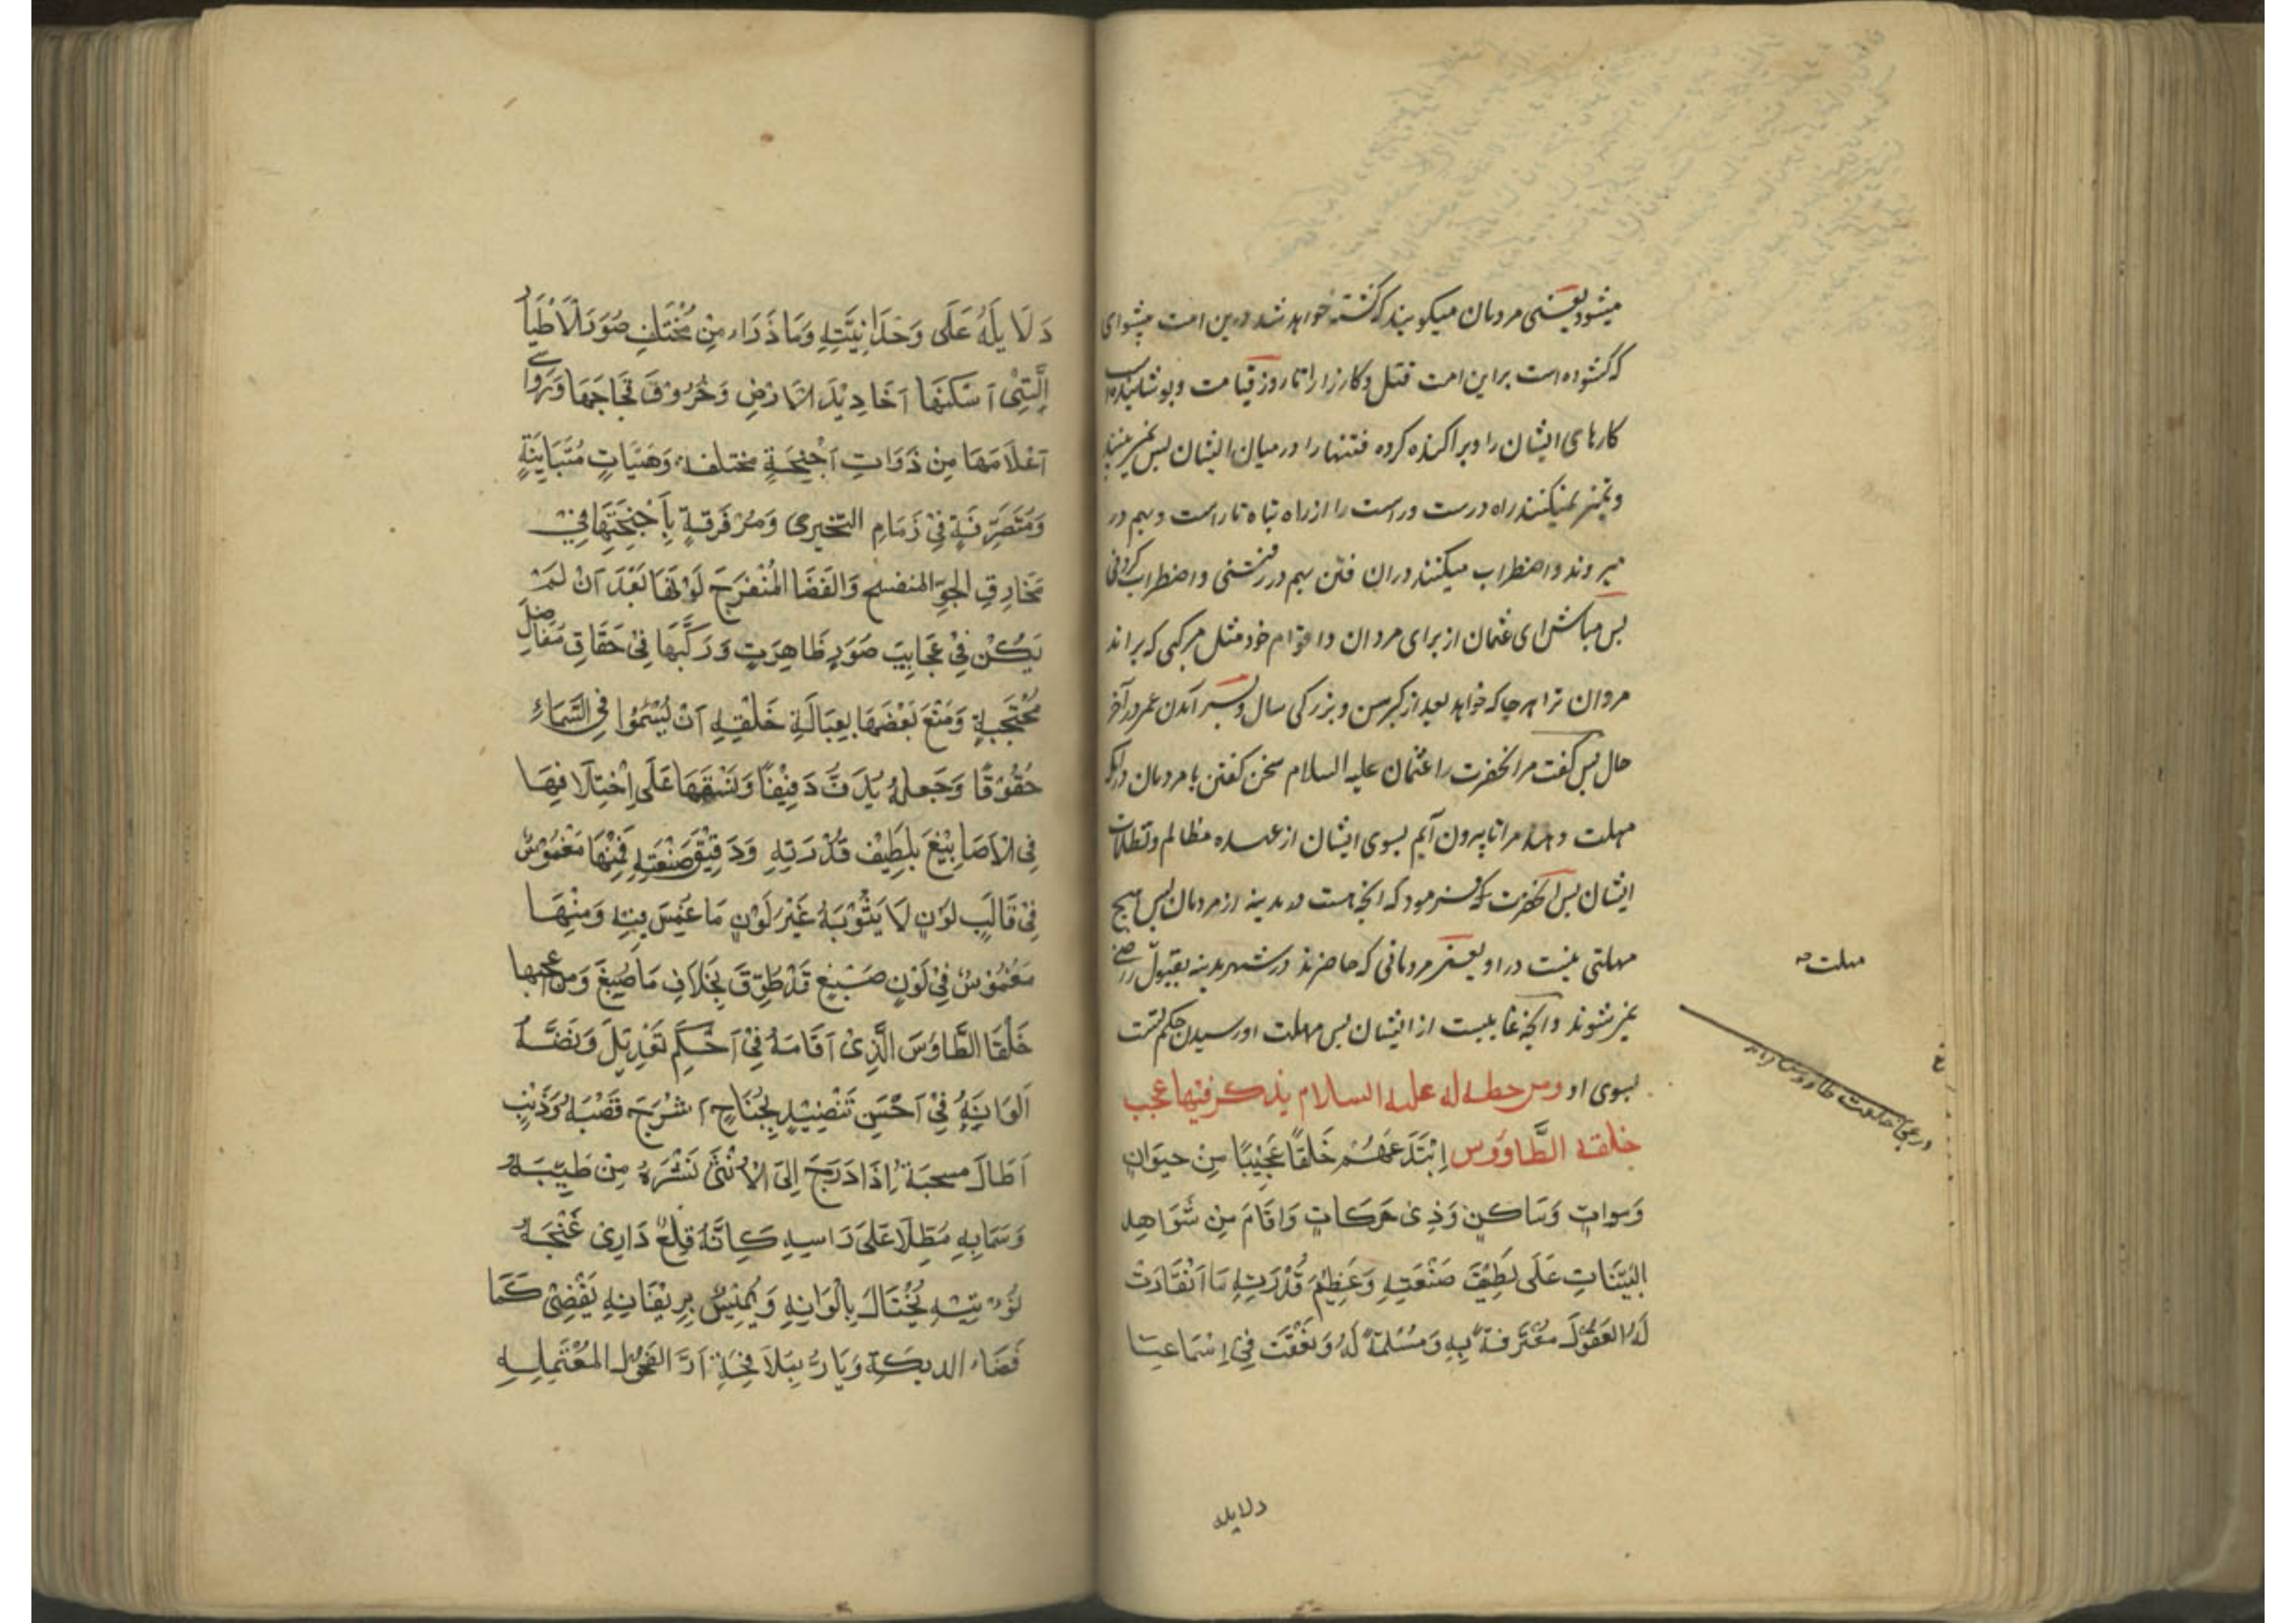 میشود یعنی مردمان میکویند که کشته خواهد شد درین امت پیشوای
که کشوده است براین امت قتل و کارزار را تا روز قیامت و پوشانیده
کارهای ایشان را و پراکنده کرده فتنها را در میان ایشان پس نمیبینند
و تمیز نمیکنند راه درست و راست را از راه تباه نا راست و بهم در
میروند و اضطراب میکنند در ان فتن بهم در رفتنی و اضطراب کردنی
پس مباش ای عثمان از برای مروان و اقوام خود مثل مرکبی که براند
مروان ترا هر جا که خواهد بعد از کبر سن و بزرکی سال و بسر آمدن عمر در آخر
حال پس کفت مر انحضرت را عثمان علیه السلام سخن کفتن با مردمان در انکه
مهلت دهند مرا تا بیرون آیم بسوی ایشان از عهده مظالم و تظلمات
ایشان پس انحضرت فرمود که انچه هست در مدینه از مردمان پس هیچ
مهلتی نیست در او یعنی مردمانی که حاضرند در شهر مدینه بقبول راضی
نمیشوند و انچه غایبست از ایشان پس مهلت او رسیدن حکم تست
بسوی او ومن خطبه له علیه السلام یذکر فیها عجب
خلقه الطَّاووس اِبْتَدَعَهُمْ خَلْقًا عَجِیْبًا مِنْ حیوَانٍ
وَمواتٍ وَسَاکِنٍ وَذِیْ حَرَکَاتٍ وَاقَامَ مِنْ شَوَاهِدِ
البَیِّنَاتِ عَلَی لَطِیْفِ صَنْعَتِهِ وَعَظِیْمِ قُدْرَتِهِ مَا انْقَادَتْ
لَهُ العقُوْل مُعْتَرِفَةً بِهِ وَمُسْلِمَةً لَهُ وَنَعَقَتْ فِیْ اِسْمَاعِنَا
مهلت
در عجایب خلقت طاووس
دلایله
دَلَایِلُهُ عَلَی وَحْدَانِیَّتِهِ وَمَا ذَرَاء مِنْ مُخْتَلِفِ صُوَرِ الْاَطْیَارِ
الَّتِیْ اَسْکَنَهَا اَخَادِیْدَ الْاَرْضِ وَخُرُوْقَ فِجَاجَهَا وَرَوَاسِی
اَعْلَامَهَا مِنْ ذَوَاتِ اَجْنِحَةٍ مختلفه وَهَیَاتٍ مُتَبَایِنَةٍ
وَمُتَصَرِّفَةٍ فِیْ زَمَامِ التسخیر وَمُرَفْرِفَةٍ بِاَجْنِحَتِهَا فِیْ
مَخَارِقِ الجَوِّ المنفسح وَالْفَضَا الْمُنْفَرِجَ کَوَّنَهَا بَعْدَ اَنْ لَمْ
یَکُنْ فِیْ عَجَایِبِ صُوَرٍ ظَاهِرَتٍ وَرَکَّبَهَا فِیْ حَقَاقِ مَفَاصِلَ
مُحْتَجِبَةٍ وَمَنَعَ بَعْضَهَا بِعَبَالَةِ خَلْقِهِ اَنْ یَسْمُوا فِی السَّمَاءِ
حُقُوْقًا وَجَعلَهُ یَدِفُّ دَفِیْفًا وَنَسَّقَهَا عَلَی اِخْتِلَافِهَا
فِی الْاَصَابِیْغَ بِلَطِیْفِ قُدْرَتِهِ وَدَقِیْقِ صَنْعَتِهِ فَمِنْهَا مَغْمُوْسٌ
فِیْ قَالَبِ لَوْنٍ لَا یَشُوْبُهُ غَیْرُ لَوْنٍ مَا غُمِسَ فِیْهِ وَمِنْهَا
مَغْمُوْسٌ فِیْ لَوْنِ صَبْغٍ قَدْ طُوِّقَ بِخَلَافِ مَا صُبِغَ وَمن عجبها
خَلْقًا الطَّاوُسَ الَّذِیْ اَقَامَهُ فِیْ اَحْکَمِ تَعْدِیْلٍ وَنَضَّدَ
اَلْوَانَهُ فِیْ اَحْسَنِ تَنْضِیْدٍ بِجَنَاحٍ اَشْرَجَ قَصَبَهُ وَذَنَبٍ
اَطَالَ مسحبَهُ اِذَا دَرَجَ اِلَی الْاُنْثَیْ نَشَرَهُ مِنْ طَیِّهِ
وَسَمَا بِهِ مُطِلًّا عَلَیْ رَاسِهِ کَانَّهُ قِلْعُ دَارِیْ عَنَجَهُ
نُوْتِیُّهُ یَخْتَالُ بِالْوَانِهِ وَیَمِیْسُ بِزِیْفَانِهِ یَفْضِیْ کَمَا
فَضَاء الدیَکَةِ وَیَارُّ بِمَلَاقَحَةٍ اَرَّ الفُحُوْلِ الْمُغْتَلِمَةِ